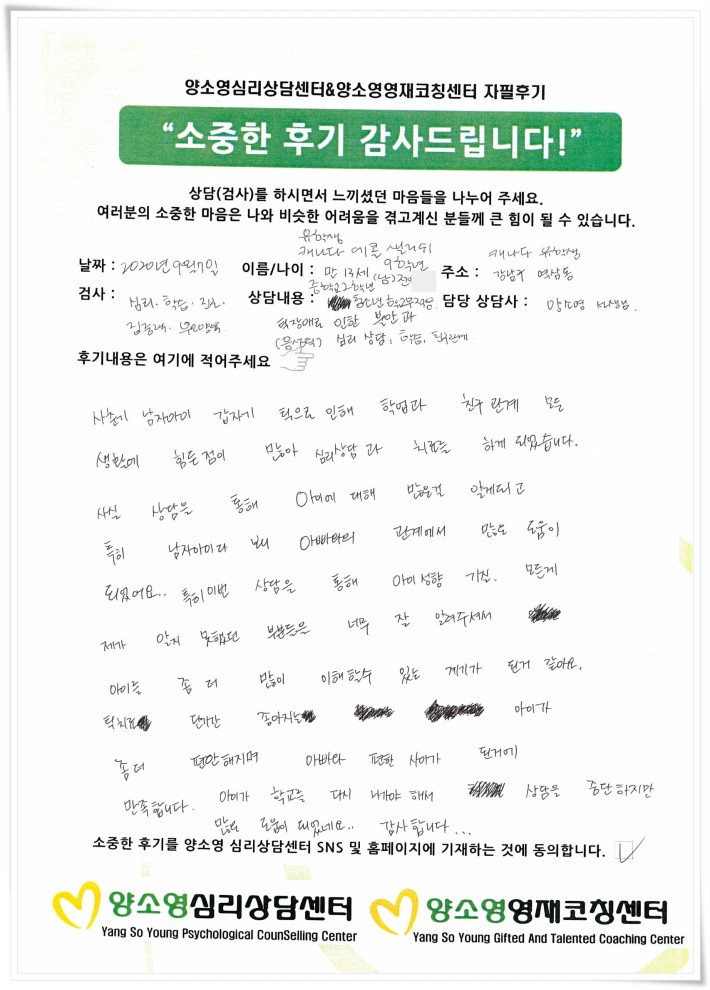 양소영심리상담센터&양소영영재코칭센터 자필후기
“소중한 후기 감사드립니다!”
상담(검사)를 하시면서 느끼셨던 마음들을 나누어 주세요.
여러분의 소중한 마음은 나와 비슷한 어려움을 겪고계신 분들께 큰 힘이 될 수 있습니다.
유학생
캐나다 에콜 9학년 캐나다 유학생
날짜 : 2020년 9월 7일 이름/나이 : 만 13세 (남) 주소 : 강남구 역삼동
중학교 2학년
검사 : 심리. 학습. 진로. 상담내용 : 청소년 학교부적응 담당 상담사 : 양소영 선생님.
집중력. 부모양육 틱장애로 인한 불안과
(음성틱) 심리 상담, 학습, 친구관계
후기내용은 여기에 적어주세요
사춘기 남자아이 갑자기 틱으로 인해 학업과 친구 관계 모든
생활에 힘든점이 많아 심리상담과 치료를 하게 되었습니다.
사실 상담을 통해 아이에 대해 많은걸 알게되고
특히 남자아이다 보니 아빠와의 관계에서 많은 도움이
되었어요.. 특히 이번 상담을 통해 아이성향 기질. 모든게
제가 알지 못했던 부분들은 너무 잘 알려주셔서
아이를 좀 더 많이 이해할수 있는 계기가 된거 같아요.
틱치료 단기간 좋아지는 아이가
좀 더 편안해지며 아빠와 편한 사이가 된거에
만족합니다. 아이가 학교를 다시 나가야 해서 상담을 중단하지만
많은 도움이 되었네요.. 감사합니다...
소중한 후기를 양소영 심리상담센터 SNS 및 홈페이지에 기재하는 것에 동의합니다.
양소영심리상담센터 양소영영재코칭센터
Yang So Young Psychological CounSelling Center Yang So Young Gifted And Talented Coaching Center